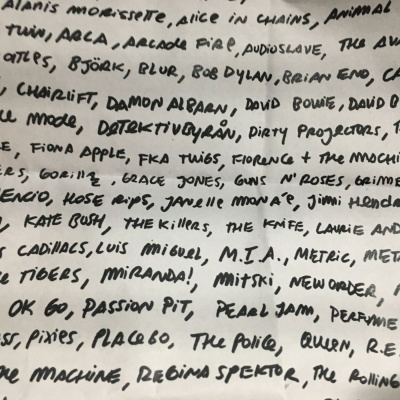 ALANIS MORISSETTE, ALICE IN CHAINS, ANIMAL
TWIN, ARCA, ARCADE FIRE, AUDIOSLAVE, THE AV
BJÖRK, BLUR, BOB DYLAN, BRIAN ENO, CA
, CHAIRLIFT, DAMON ALBARN, DAVID BOWIE, DAVID
MODE, DETEKTIVBYRÅN, DIRTY PROJECTORS,
, FIONA APPLE, FKA TWIGS, FLORENCE + THE MACHI
GORILLZ, GRACE JONES, GUNS N' ROSES, GRIME
ENCIO, HOSE RIPS, JANELLE MONÁE, JIMI HENDR
, KATE BUSH, THE KILLERS, THE KNIFE, LAURIE AND
S CADILLACS, LUIS MIGUEL, M.I.A., METRIC, MET
TIGERS, MIRANDA!, MITSKI, NEW ORDER,
OK GO, PASSION PIT, PEARL JAM, PERFUME
, PIXIES, PLACEBO, THE POLICE, QUEEN, R.E.
MACHINE, REGINA SPEKTOR, THE ROLLING